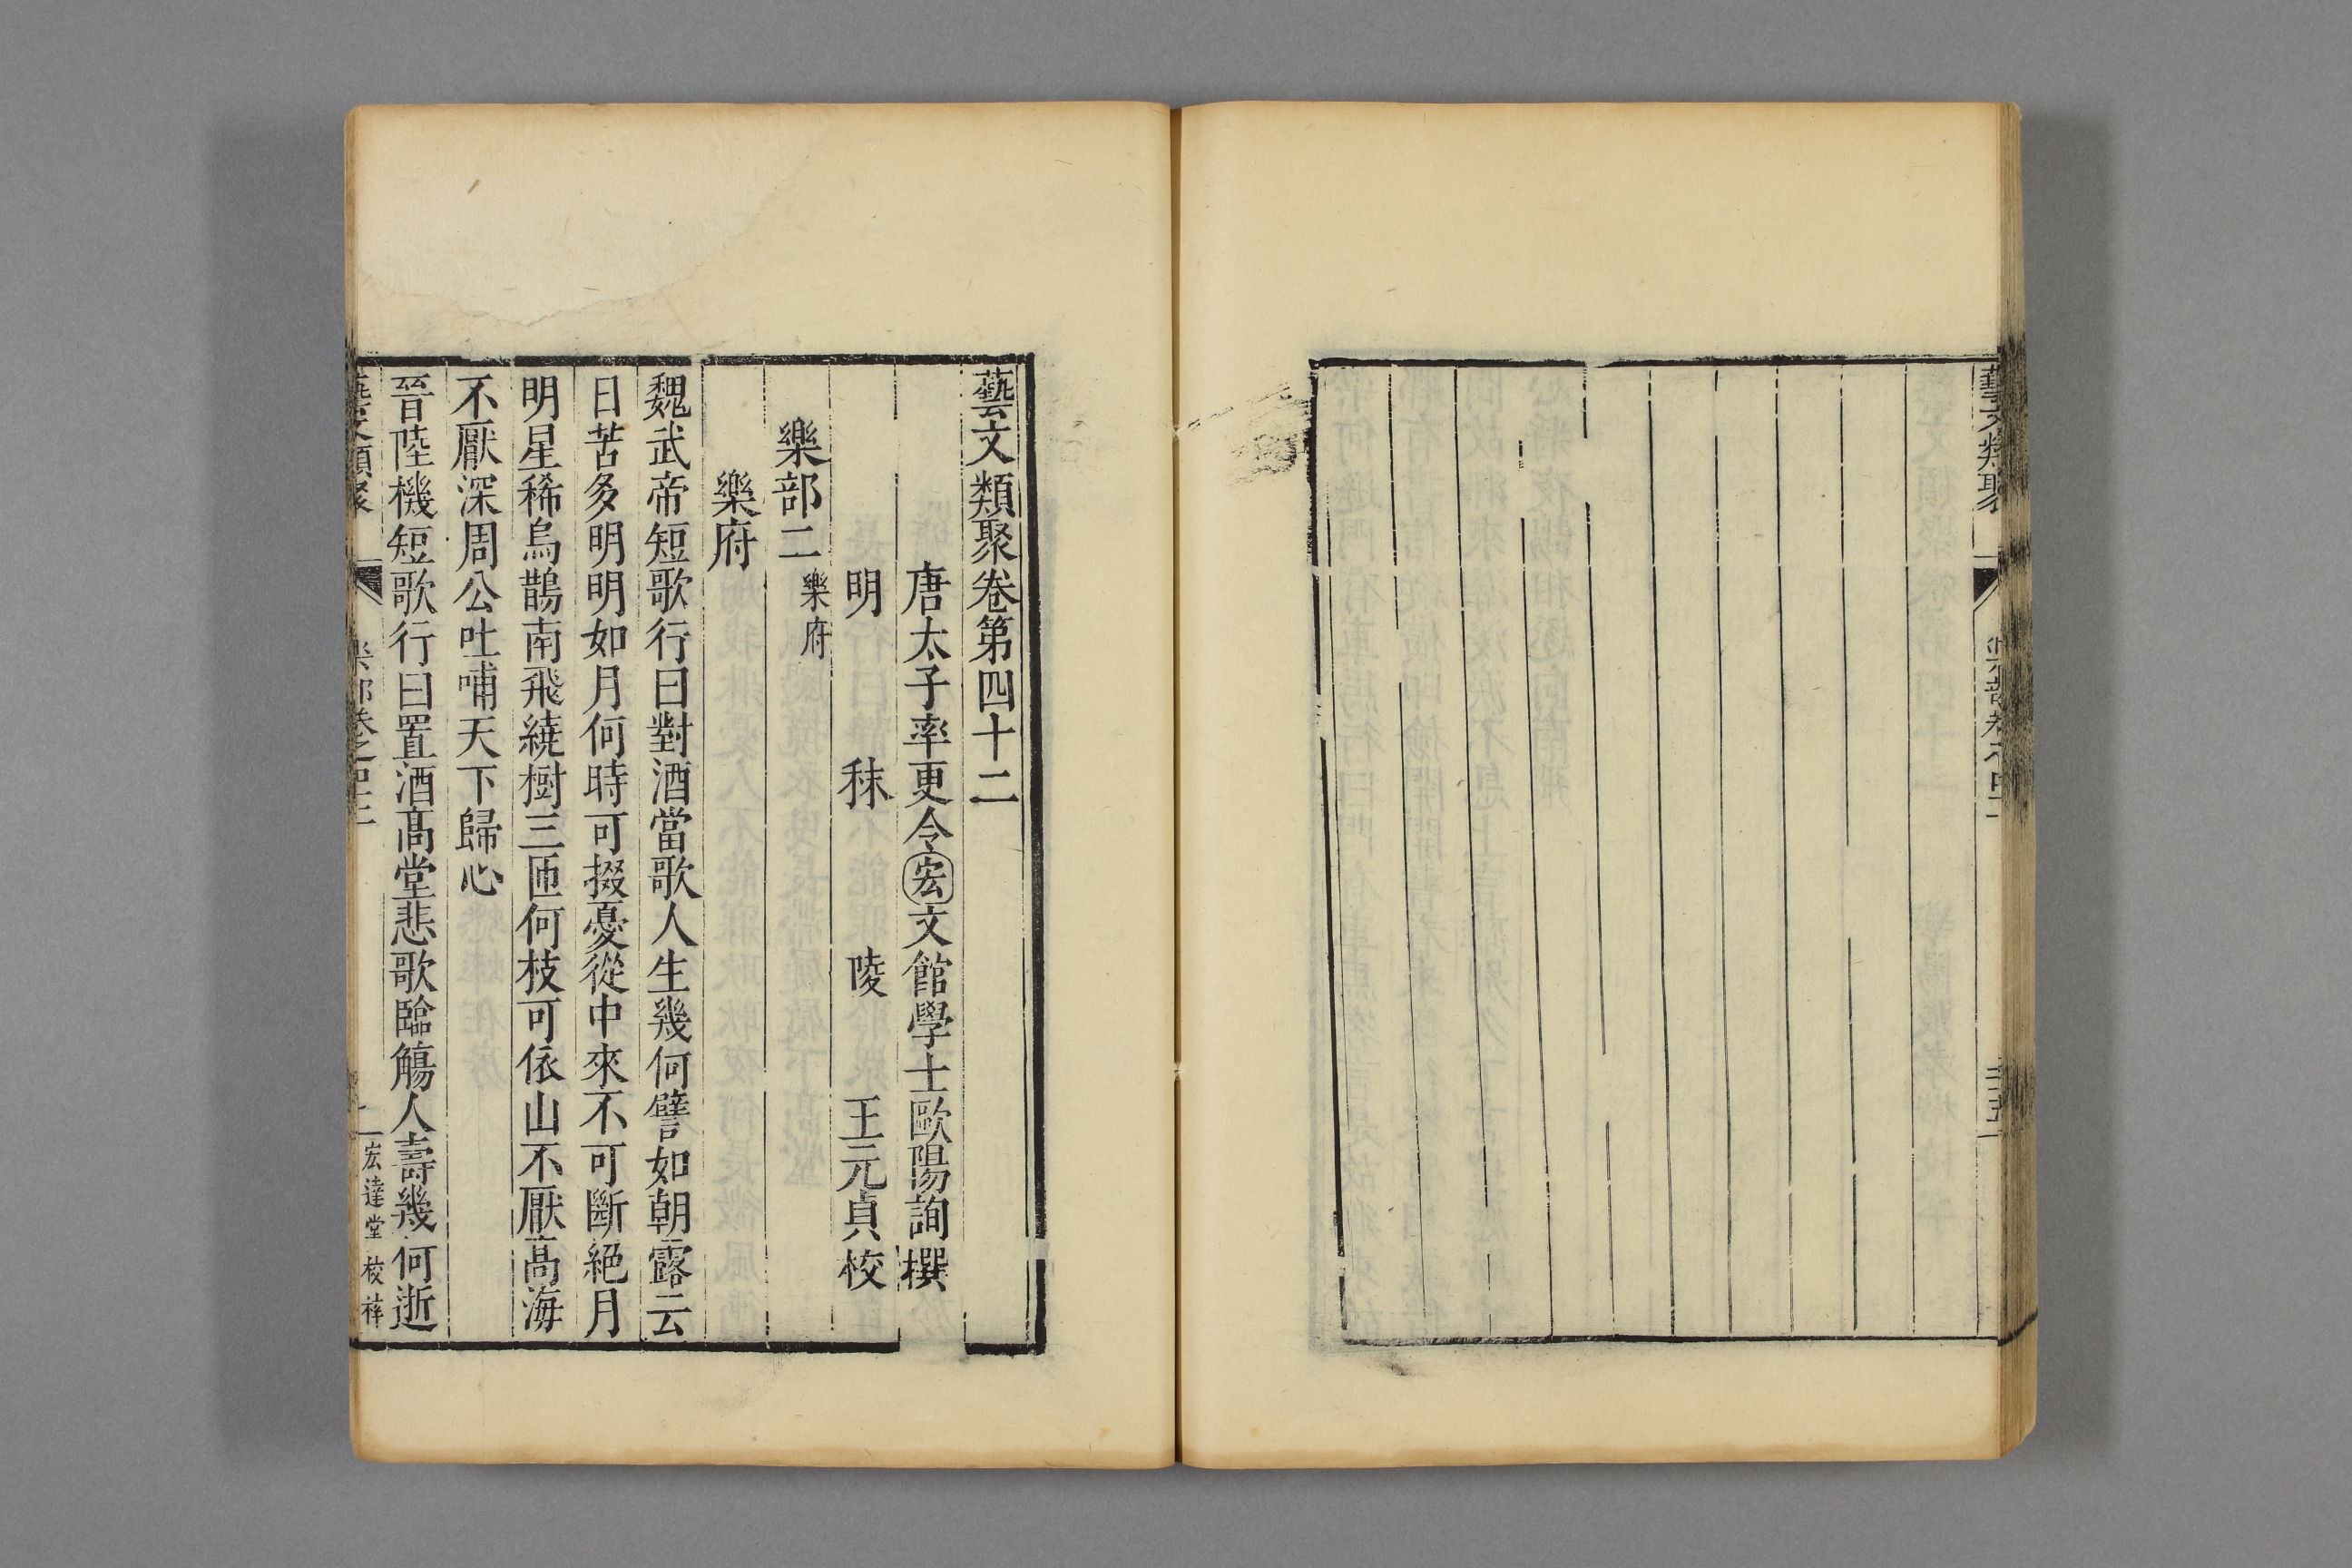 藝文類聚
藝文類聚卷第四十二
唐太子率更令宏文館學士歐陽詢撰
明秣陵王元貞校
樂部二樂府
樂府
魏武帝短歌行曰對酒當歌人生幾何譬如朝露云
日苦多明明如月何時可掇憂從中來不可斷絕月
明星稀烏鵲南飛繞樹三匝何枝可依山不厭高海
不厭深周公吐哺天下歸心
晉陸機短歌行曰置酒高堂悲歌臨觴人壽幾何逝
藝文類聚 樂部卷之四十二 一 宏達堂校梓